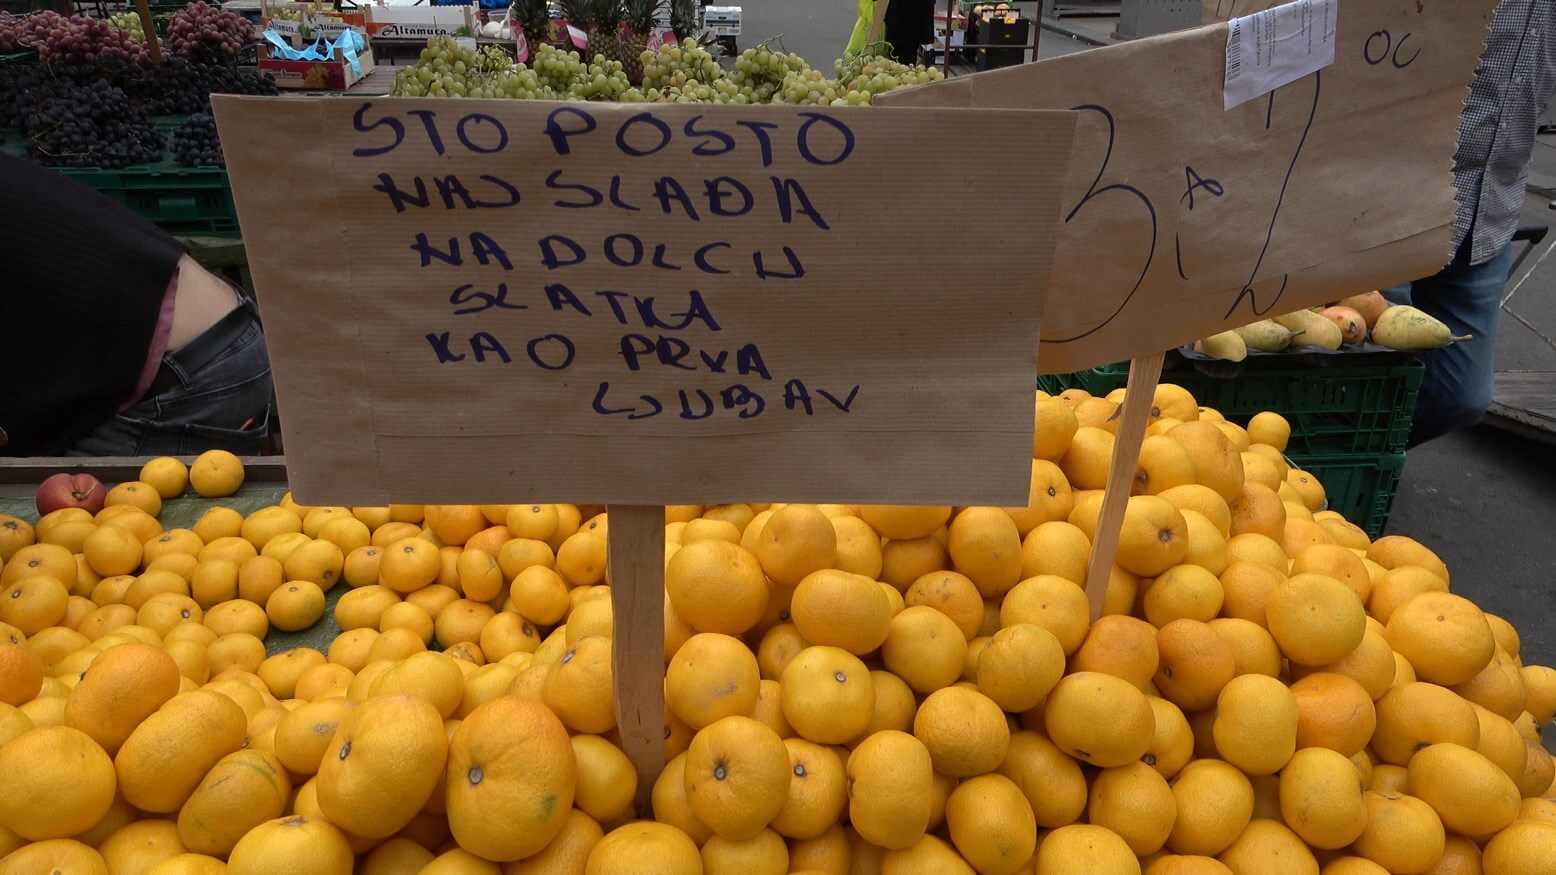 STO POSTO
NAJSLAĐA
NA DOLCU
SLATKA
KAO PRVA
LJUBAV
Altamura
Altamura